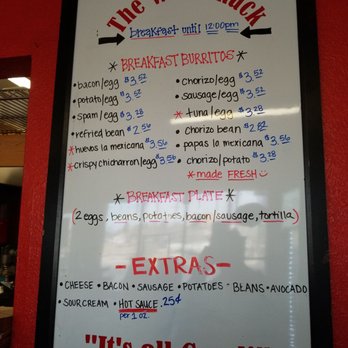 The
breakfast until 12:00pm
* BREAKFAST BURRITOS
• bacon/egg $3.52
• potato/egg $3.52
• spam/egg $3.28
• refried bean $2.56
* huevos la mexicana $3.56
* crispy chicharron/egg $3.56
• chorizo/egg $3.52
• sausage/egg $3.52
* tuna/egg $3.28
chorizo bean $2.82
• papas la mexicana $3.56
• chorizo/potato $3.28
* made FRESH
* BREAKFAST PLATE *
(2 eggs, beans, potatoes, bacon/sausage, tortilla)
- EXTRAS -
• CHEESE • BACON • SAUSAGE • POTATOES - BEANS • AVOCADO
• SOUR CREAM • HOT SAUCE 25¢
per 1 oz.
"It's all